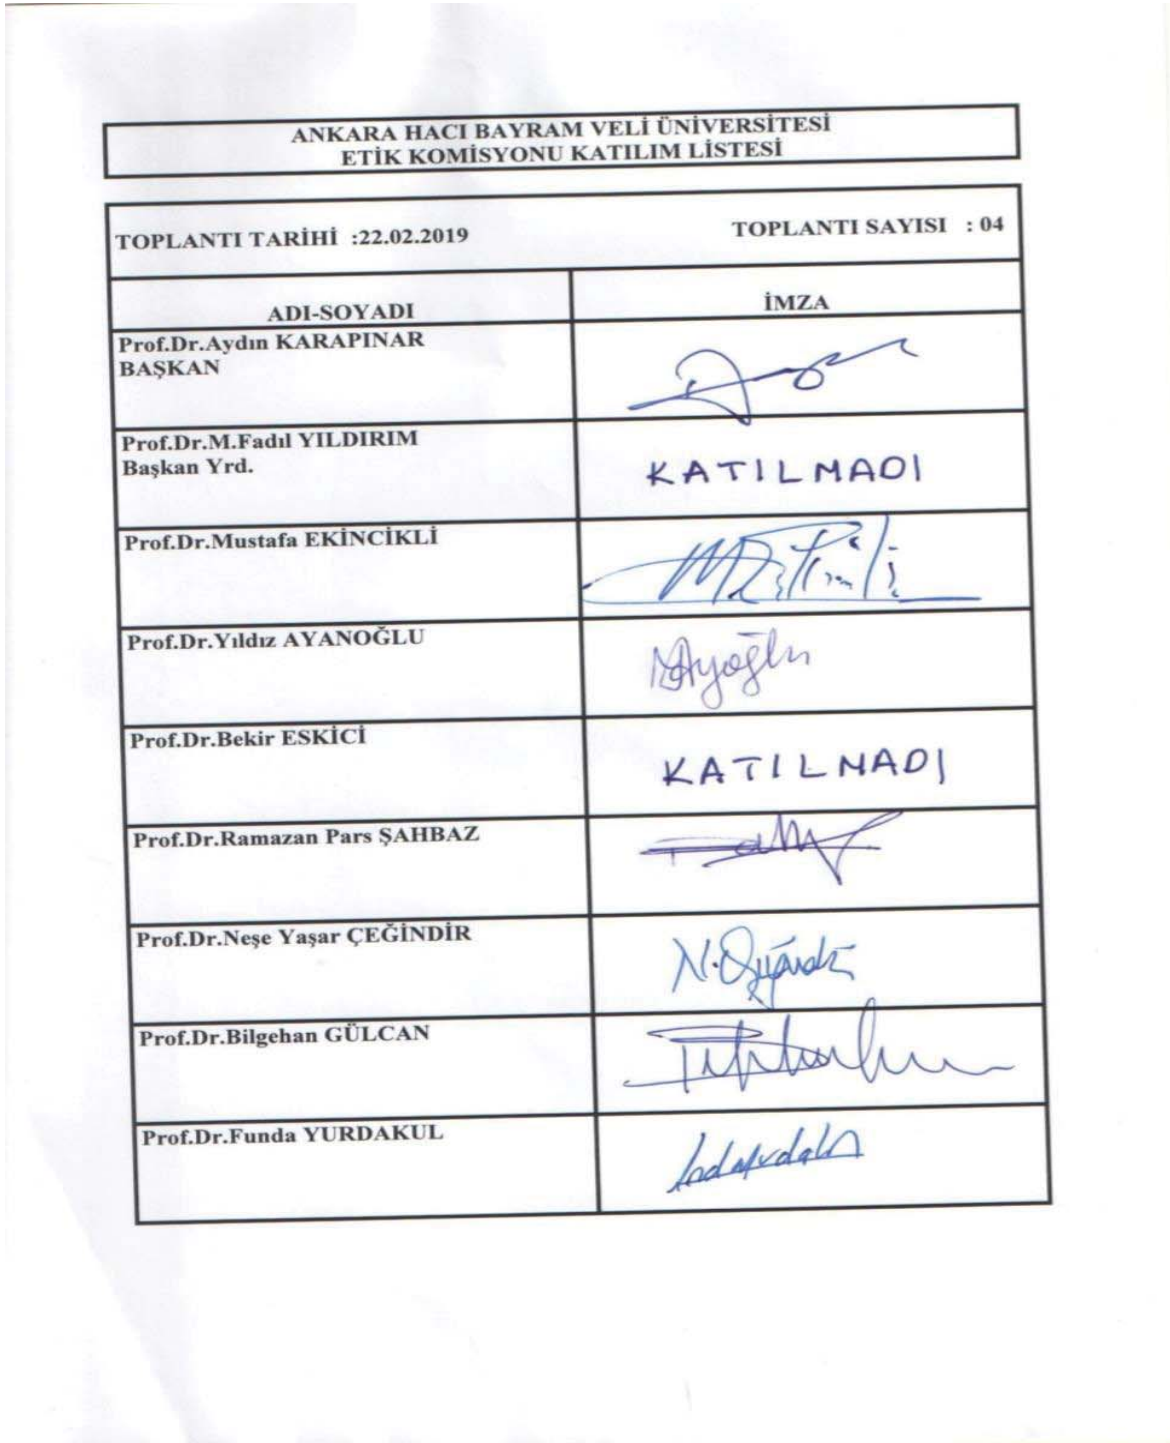 ANKARA HACI BAYRAM VELİ ÜNİVERSİTESİ
ETİK KOMİSYONU KATILIM LİSTESİ
TOPLANTI TARİHİ :22.02.2019 TOPLANTI SAYISI : 04
ADI-SOYADI İMZA
Prof.Dr.Aydın KARAPINAR
BAŞKAN
Prof.Dr.M.Fadıl YILDIRIM
Başkan Yrd.
KATILMADI
Prof.Dr.Mustafa EKİNCİKLİ
Prof.Dr.Yıldız AYANOĞLU
Prof.Dr.Bekir ESKİCİ
KATILMADI
Prof.Dr.Ramazan Pars ŞAHBAZ
Prof.Dr.Neşe Yaşar ÇEĞİNDİR
Prof.Dr.Bilgehan GÜLCAN
Prof.Dr.Funda YURDAKUL